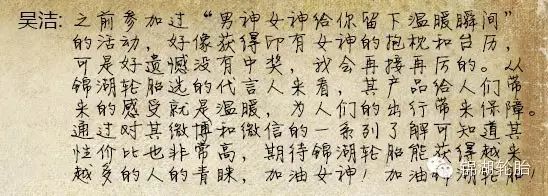 吴洁：之前参加过“男神女神给你留下温暖瞬间”
的活动，好像获得印有女神的抱枕和台历，
可是好遗憾没有中奖，我会再接再厉的。从
锦湖轮胎选的代言人来看，其产品给人们带
来的感受就是温暖，为人们的出行带来保障。
通过对其微博和微信的一系列了解可知道其
性价比也非常高，期待锦湖轮胎能获得越来
越多的人的青睐，加油女神！加油锦湖轮胎！
锦湖轮胎